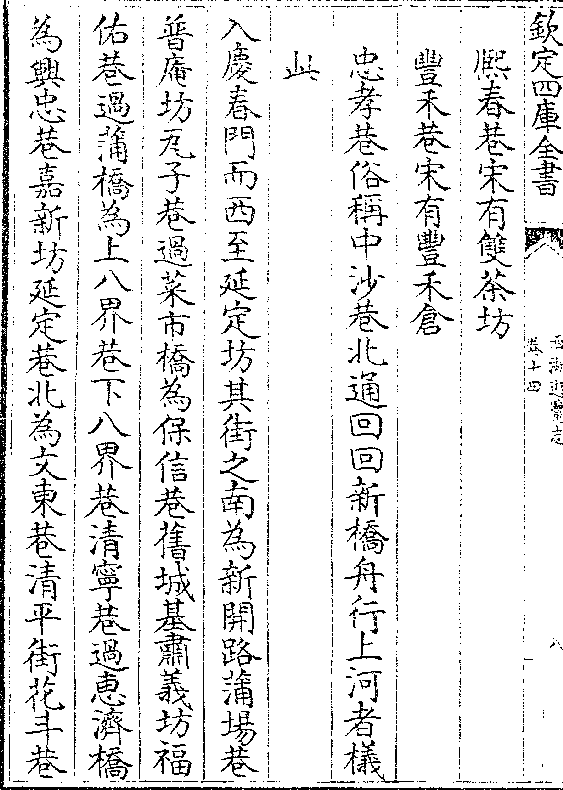 欽定四庫全書
西湖遊覽志
卷十四
八
熙春巷宋有雙茶坊
豐禾巷宋有豐禾倉
忠孝巷俗稱中沙巷北通回回新橋舟行上河者檥
此
入慶春門而西至延定坊其街之南為新開路蒲場巷
普庵坊瓦子巷過菜市橋為保信巷舊城基肅義坊福
佑巷過蒲橋為上八界巷下八界巷清寧巷過惠濟橋
為興忠巷嘉新坊延定巷北為文東巷清平街花斗巷